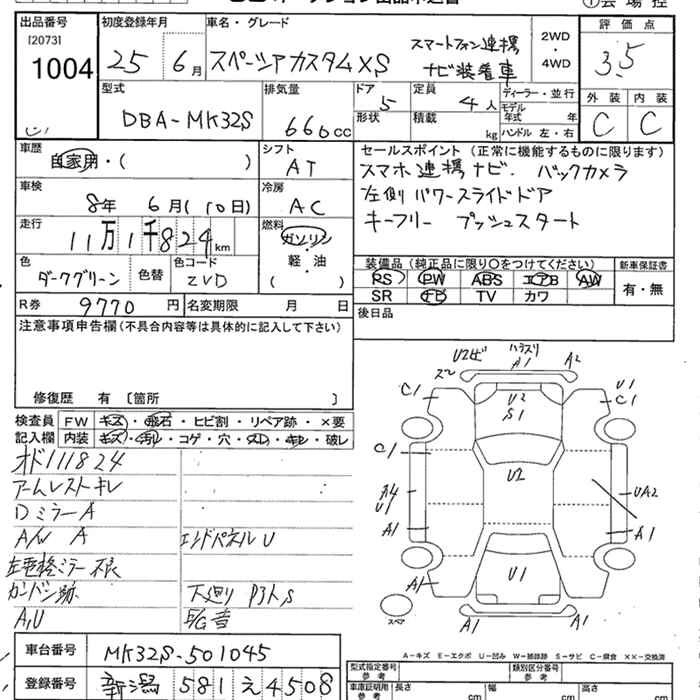 出品番号 初度登録年月 車名・グレード 評価点
[2073] 1004 25年 6月 スペーシアカスタムXS スマートフォン連携 ナビ装着車 2WD・4WD 3.5
型式 排気量 ドア 定員 ディーラー・並行 外装 内装
DBA-MK32S 660cc 5 4人 モデル年式 年 C C
形状 積載 kg ハンドル 左・右
車歴 シフト セールスポイント (正常に機能するものに限ります)
自家用・( ) AT スマホ連携ナビ. バックカメラ
車検 冷房 左側パワースライドドア
8年 6月(10日) AC キーフリー プッシュスタート
走行 燃料
11万1千824km ガソリン・軽・油 ( )
色 色替 色コード 装備品 (純正品に限り〇をつけてください) 新車保証書
ダークグリーン ZVD PS PW ABS エアB AW 有・無
SR TV カワ
R券 9770円 名変期限 月 日 後日品
注意事項申告欄 (不具合内容等は具体的に記入して下さい)
修復歴 有 〔箇所 〕
検査員 FW キズ・飛石・ヒビ割・リペア跡・×要
記入欄 内装 キズ・汚れ・コゲ・穴・スレ・キレ・破レ
オド111824
アームレストキレ
DミラーA
A/W A エンドパネルU
左電格ミラー不良
カンバン跡 下廻りPタトS
A,U
車台番号 MK32S-501045
登録番号 新潟 581 え 4508
U2ヒビ A1 A2
C1 U2 S1 U1 C1
C1 U1
A4 U1 UA2
A1 A1
A1 U1
スペア A1 A1
A-キズ E-エクボ U-凹み W-補修跡 S-サビ C-腐食 ××-交換済
型式指定番号 類別区分番号
参考 参考
車庫証明用 長さ cm 幅 cm 高さ cm
参考